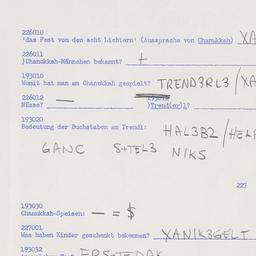 226010
'das Fest von den acht Lichtern' (Aussprache von Chanukkah) XA
226011
)Chanukkah-Männchen bekannt? +
193010
Womit hat man an Chanukkah gespielt? TREND3RL3/XA
226012
Nüsse? — )Trend(er)l?
193020
Bedeutung der Buchstaben am Trendl: HAL3B2/HELF
GANC S+TEL3 NIKS
227
193030
Chanukkah-Speisen: — = $
227001
Was haben Kinder geschenkt bekommen? XANIK3GELT
193032